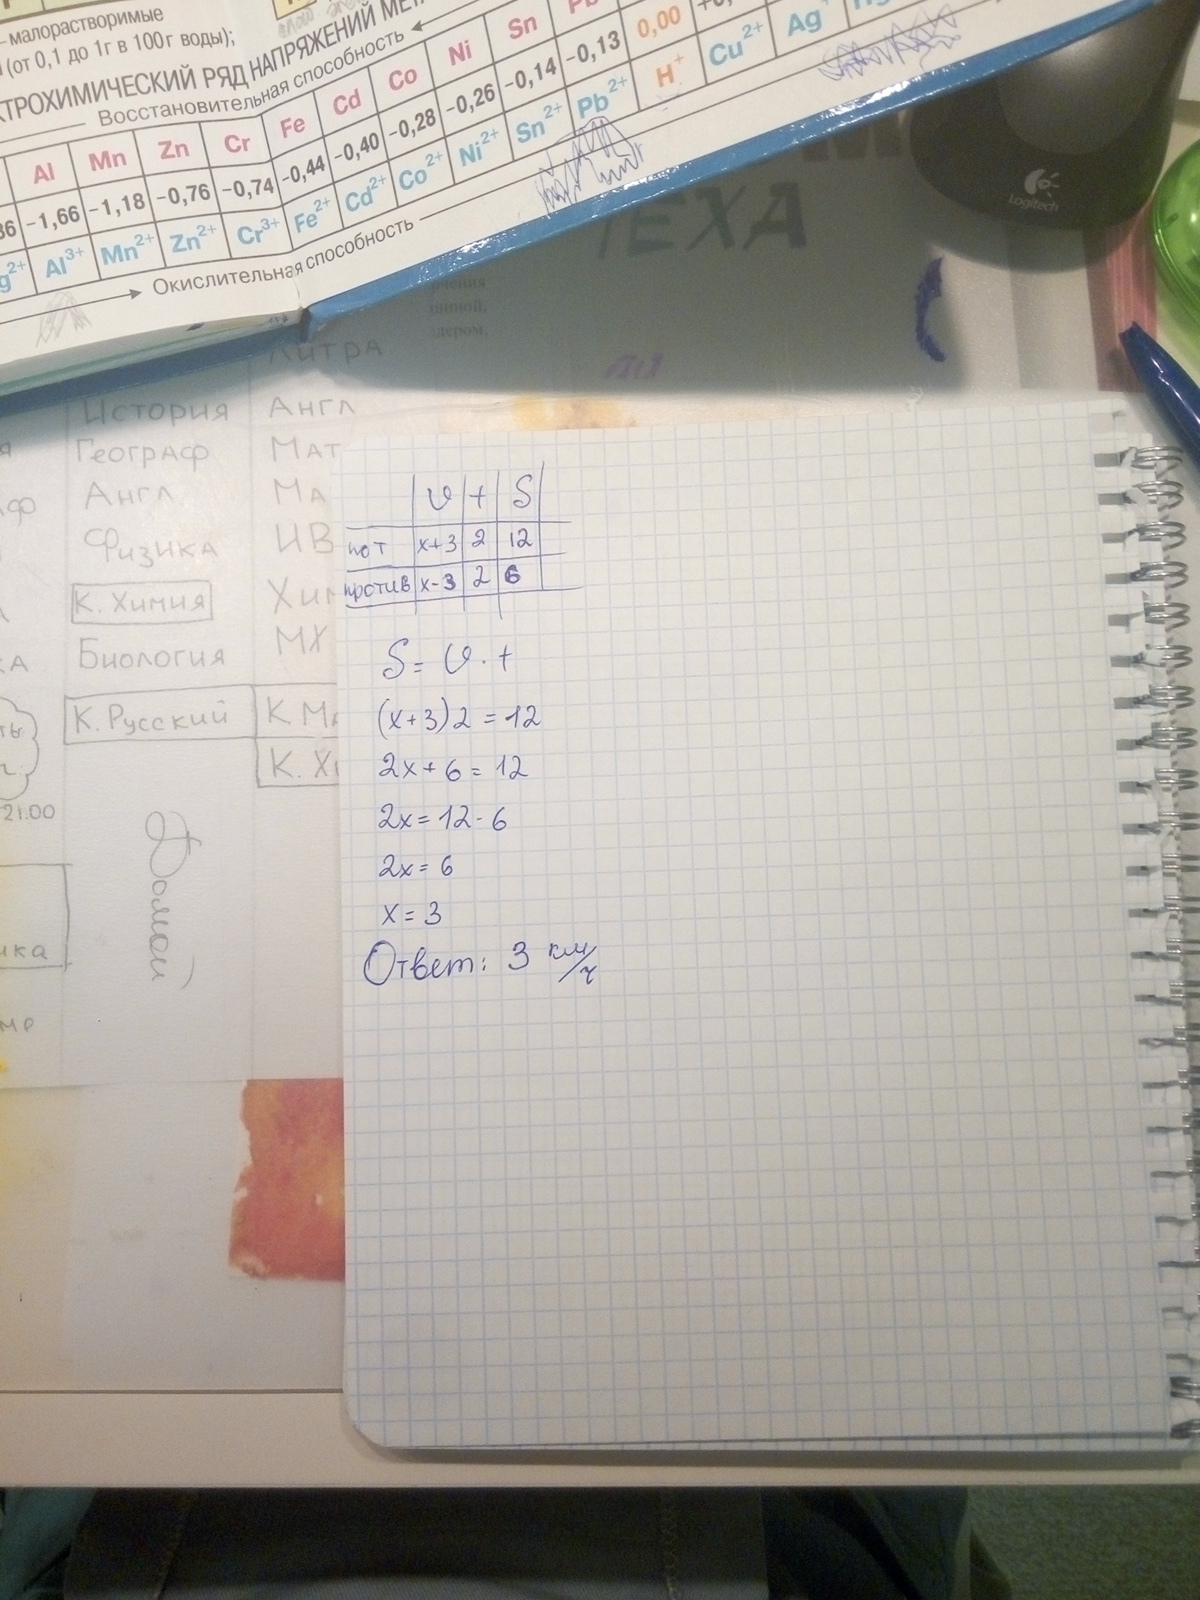 малорастворимые
(от 0,1 до 1г в 100г воды);
ТРОХИМИЧЕСКИЙ РЯД НАПРЯЖЕНИЙ МЕТ
Восстановительная способность
Al Mn Zn Cr Fe Cd Co Ni Sn Pb
-1,66 -1,18 -0,76 -0,74 -0,44 -0,40 -0,28 -0,26 -0,14 -0,13 0,00
Al3+ Mn2+ Zn2+ Cr3+ Fe2+ Cd2+ Co2+ Ni2+ Sn2+ Pb2+ H+ Cu2+ Ag+
Окислительная способность
Logitech
ЕХА
Литра
История Англ
Географ Мат
Англ Ма
Физика ИВ
К. Химия Хим
Биология МХ
К. Русский К Ма
К. Хи
21.00
Домой
υ t S
пот x+3 2 12
против x-3 2 6
S = υ · t
(x+3)2 = 12
2x+6 = 12
2x = 12-6
2x = 6
x = 3
Ответ: 3 км/ч